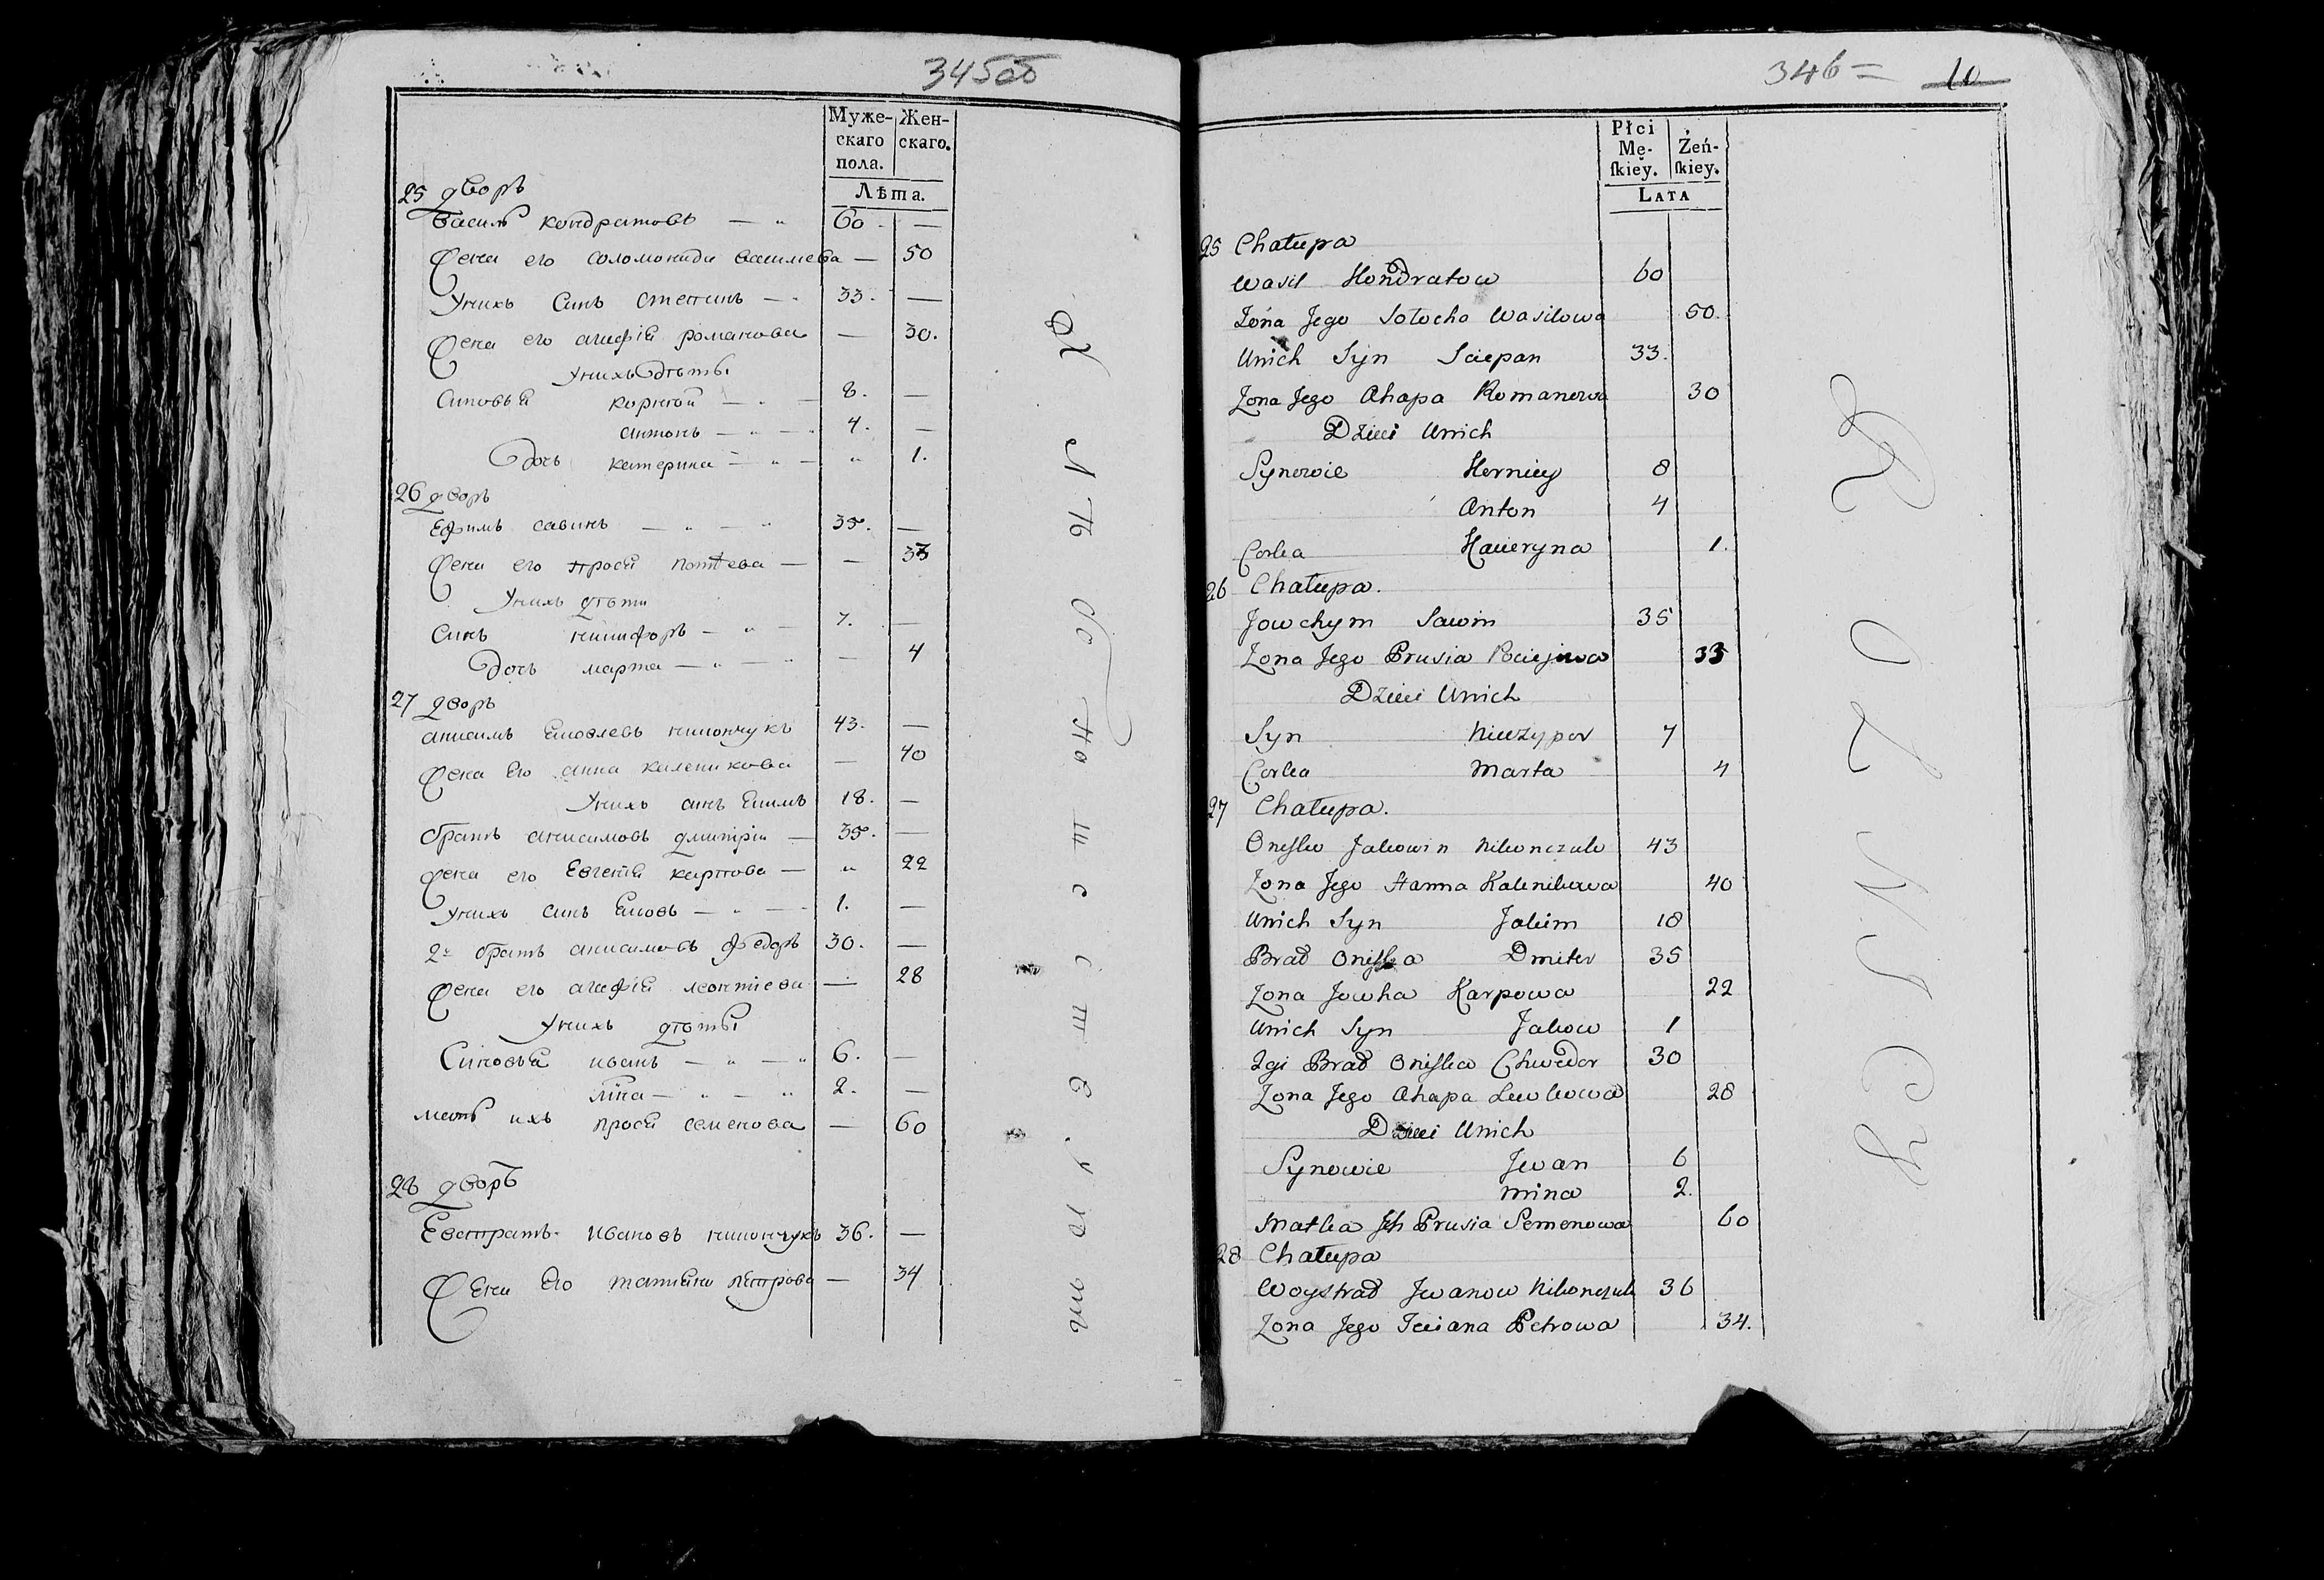 345об
Муже-
скаго
пола.
Жен-
скаго.
Лѣта.
25 дворъ
Василь кондратовъ — „ 60. —
Жена его соломонида василиева — 50
Унихъ Синъ степанъ — „ 33. —
Жена его агафія романова — 30.
Унихъ дѣты
Синовья корней — „ — 8. —
антонъ — „ — „ 4. —
дочь катерина — „ — „ 1.
26 дворъ
Ефимъ савинъ — „ — „ 35. —
Жена его прося — — 33
Унихъ дѣти
Синъ никифоръ — „ — 7. —
дочь марта — „ — „ — 4
27 дворъ
анисимъ яковлевъ никончукъ 43. —
Жена его анна каленикова — 40
Унихъ синъ якимъ 18. —
братъ анисимовъ дмитрій — 35. —
Жена его Евгенія карпова — „ 22
Унихъ синъ яковъ — „ — „ 1. —
2й братъ анисимовъ федоръ 30. —
Жена его агафія леонтіева — 28
Унихъ дѣты
Синовья иванъ — „ — „ 6. —
міна — „ — „ 2. —
мать ихъ прося семенова — 60
28 дворъ
Евстратъ ивановъ никончукъ 36. —
Жена его татіяна петрова — 34
346 = 10
Płci
Mę-
ſkiey.
Żeń-
ſkiey.
LATA
25 Chałupa
Wasil Kondratow 60
Żona Jego Sołocha Wasilowa 50.
Unich Syn Sciepan 33.
Zona Jego Ahapa Romanowa 30
Dzieci Unich
Synowie Korniey 8
Anton 4
Corka Kacieryna 1.
26 Chałupa.
Jowchym Sawin 35
Zona Jego Prusia 33
Dzieci Unich
Syn Nieczypor 7
Corka Marta 4
27 Chałupa.
Onysko Jakowin Nikonczuk 43
Zona Jego Hanna Kalenikowa 40
Unich Syn Jakim 18
Brad Oniska Dmiter 35
Zona Jowha Karpowa 22
Unich Syn Jakow 1
2gi Brad Oniska Chwedor 30
Zona Jego Ahapa Lewkowa 28
Dzieci Unich
Synowie Jwan 6
Mina 2.
Matka Jch Prusia Semenowa 60
28 Chałupa
Woystrad Jwanow Nikonczuk 36
Zona Jego Tciana Petrowa 34.